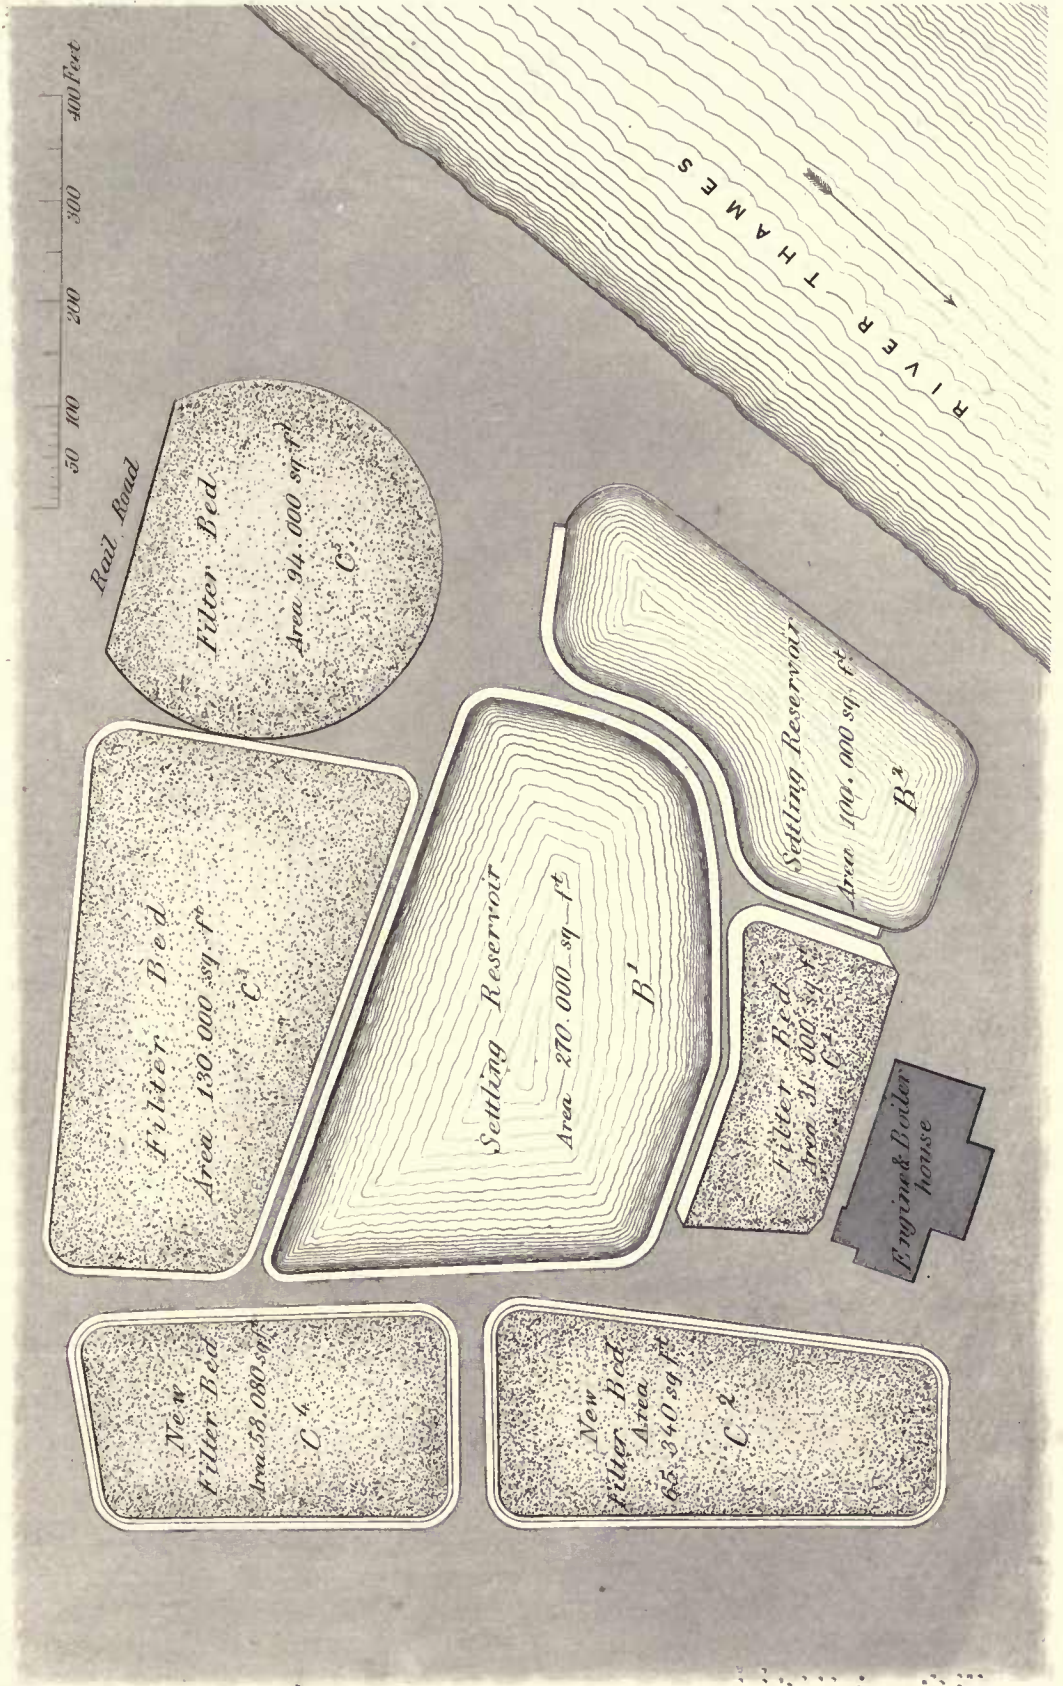 50 100 200 300 400 Feet
Rail Road
Filter Bed
Area 94.000 sq ft
C⁵
RIVER THAMES
Filter Bed
Area 130 000 sq ft
C³
Settling Reservoir
Area 270.000 sq ft
B¹
Settling Reservoir
Area 100.000 sq ft
B²
Filter Bed
Area 31.000 sq ft
C¹
Engine & Boiler
house
New
Filter Bed
Area 58 080 sq ft
C⁴
New
Filter Bed
Area
65.340 sq ft
C²